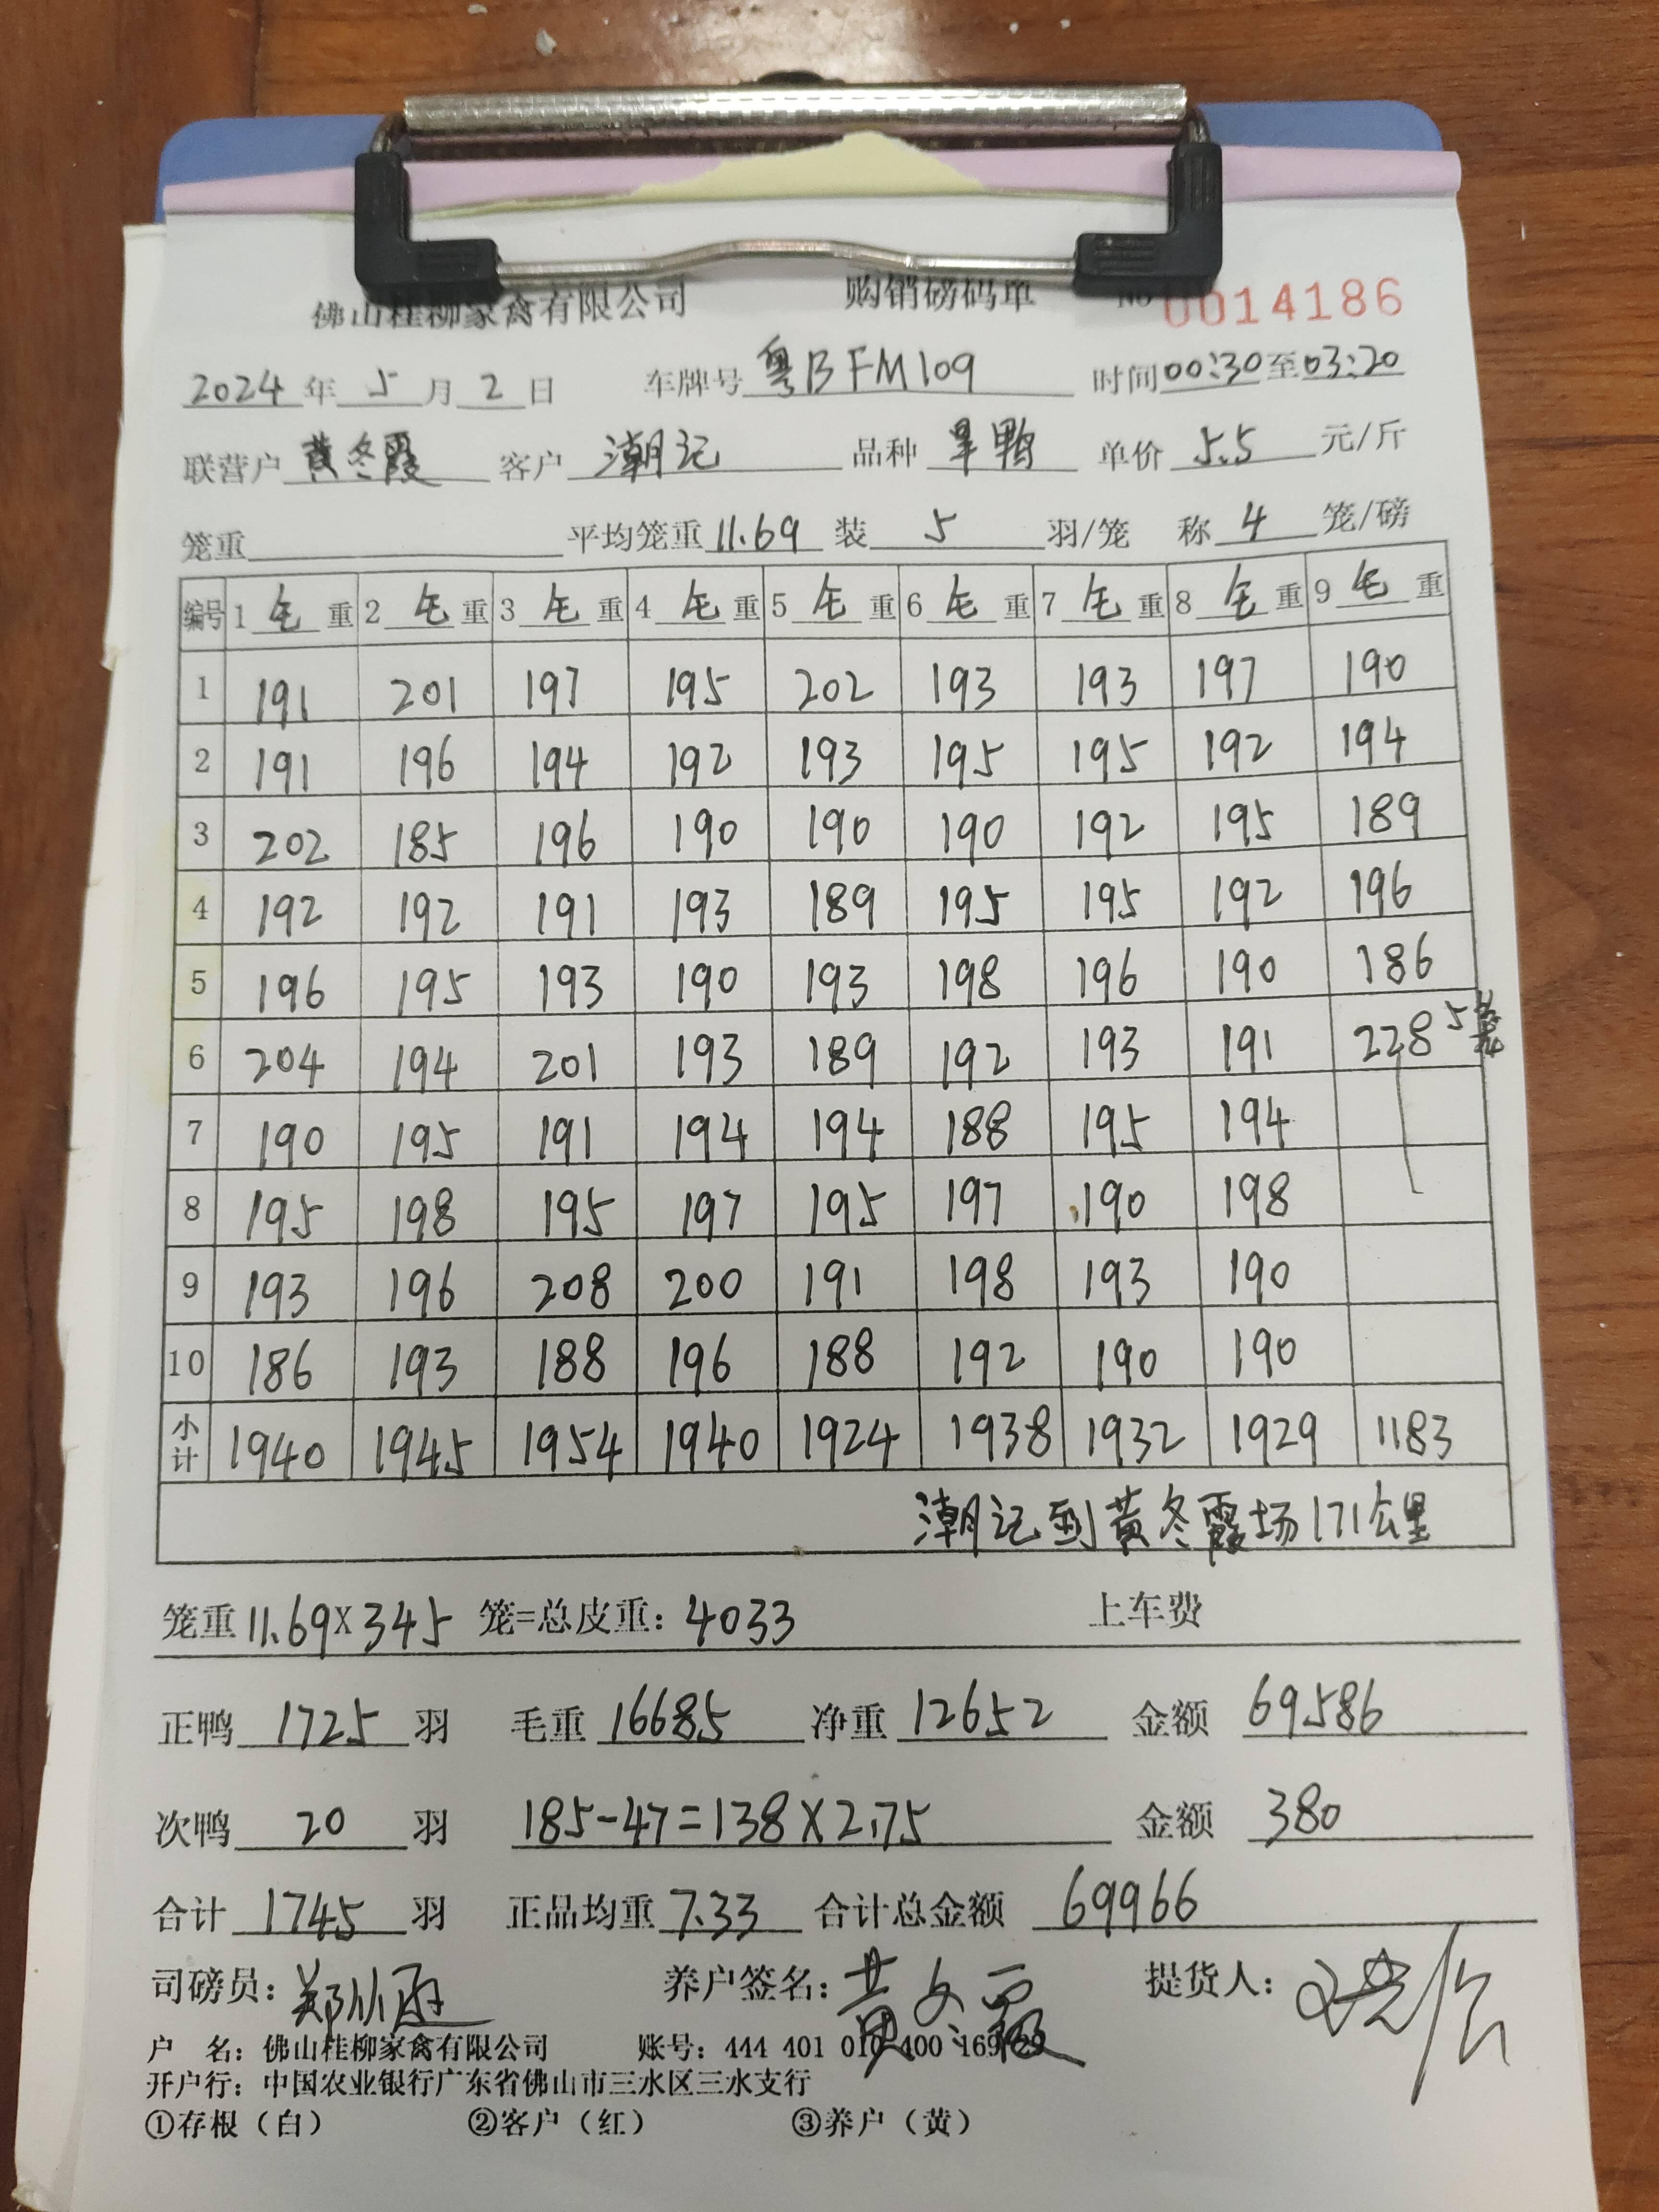 佛山桂柳家禽有限公司 购销磅码单 No 0014186
2024年5月2日 车牌号粤BFM109 时间00:30至03:20
联营户黄冬霞 客户潮记 品种旱鸭 单价5.5元/斤
笼重 平均笼重11.69 装5羽/笼 称4笼/磅
编号 1毛重 2毛重 3毛重 4毛重 5毛重 6毛重 7毛重 8毛重 9毛重
1 191 201 197 195 202 193 193 197 190
2 191 196 194 192 193 195 195 192 194
3 202 185 196 190 190 190 192 195 189
4 192 192 191 193 189 195 195 192 196
5 196 195 193 190 193 198 196 190 186
6 204 194 201 193 189 192 193 191 228 5笼
7 190 195 191 194 194 188 195 194
8 195 198 195 197 195 197 190 198
9 193 196 208 200 191 198 193 190
10 186 193 188 196 188 192 190 190
小计 1940 1945 1954 1940 1924 1938 1932 1929 1183
潮记到黄冬霞场171公里
笼重11.69X345 笼=总皮重：4033 上车费
正鸭1725羽 毛重16685 净重12652 金额69586
次鸭20羽 185-47=138X2.75 金额380
合计1745羽 正品均重7.33 合计总金额69966
司磅员： 养户签名：黄冬霞 提货人：
户 名：佛山桂柳家禽有限公司 账号：444 401 010 400 169
开户行：中国农业银行广东省佛山市三水区三水支行
①存根（白） ②客户（红） ③养户（黄）